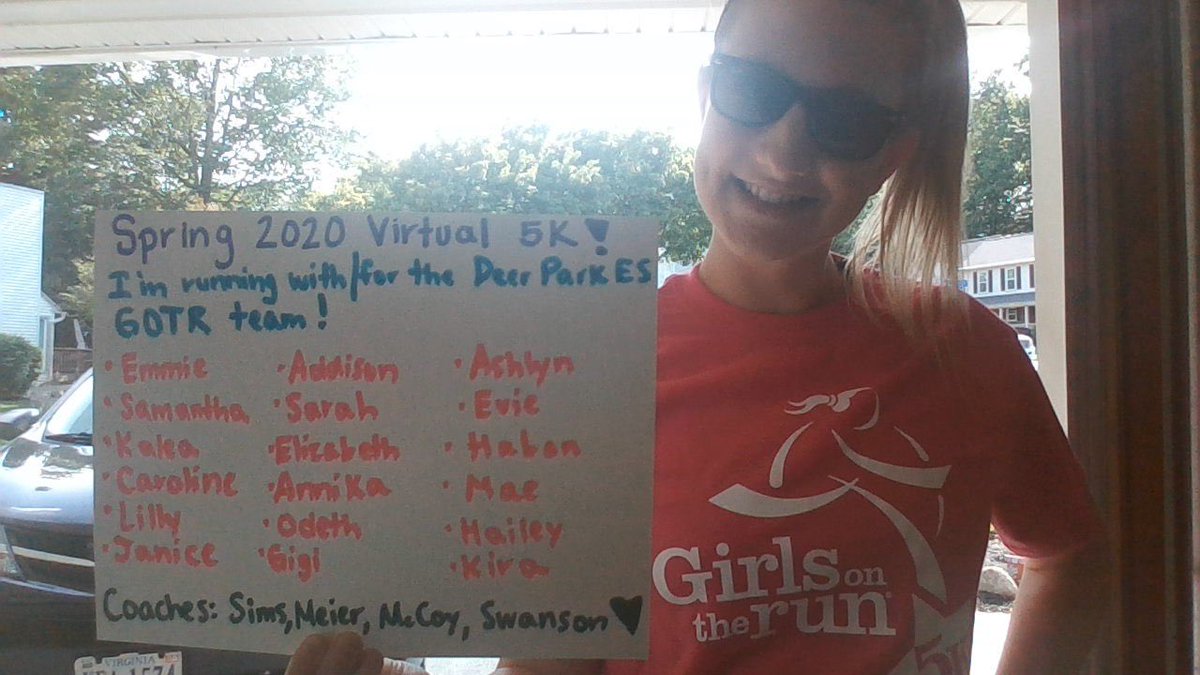 Spring 2020 Virtual 5K!
I'm running with/for the Deer Park ES
GOTR team!
• Emmie • Addison • Ashlyn
• Samantha • Sarah • Evie
• Kalea • Elizabeth • Haben
• Caroline • Annika • Mae
• Lilly • Odeth • Hailey
• Janice • Gigi • Kira
Coaches: Sims, Meier, McCoy, Swanson ♥
Girls on
the run
5K
VIRGINIA